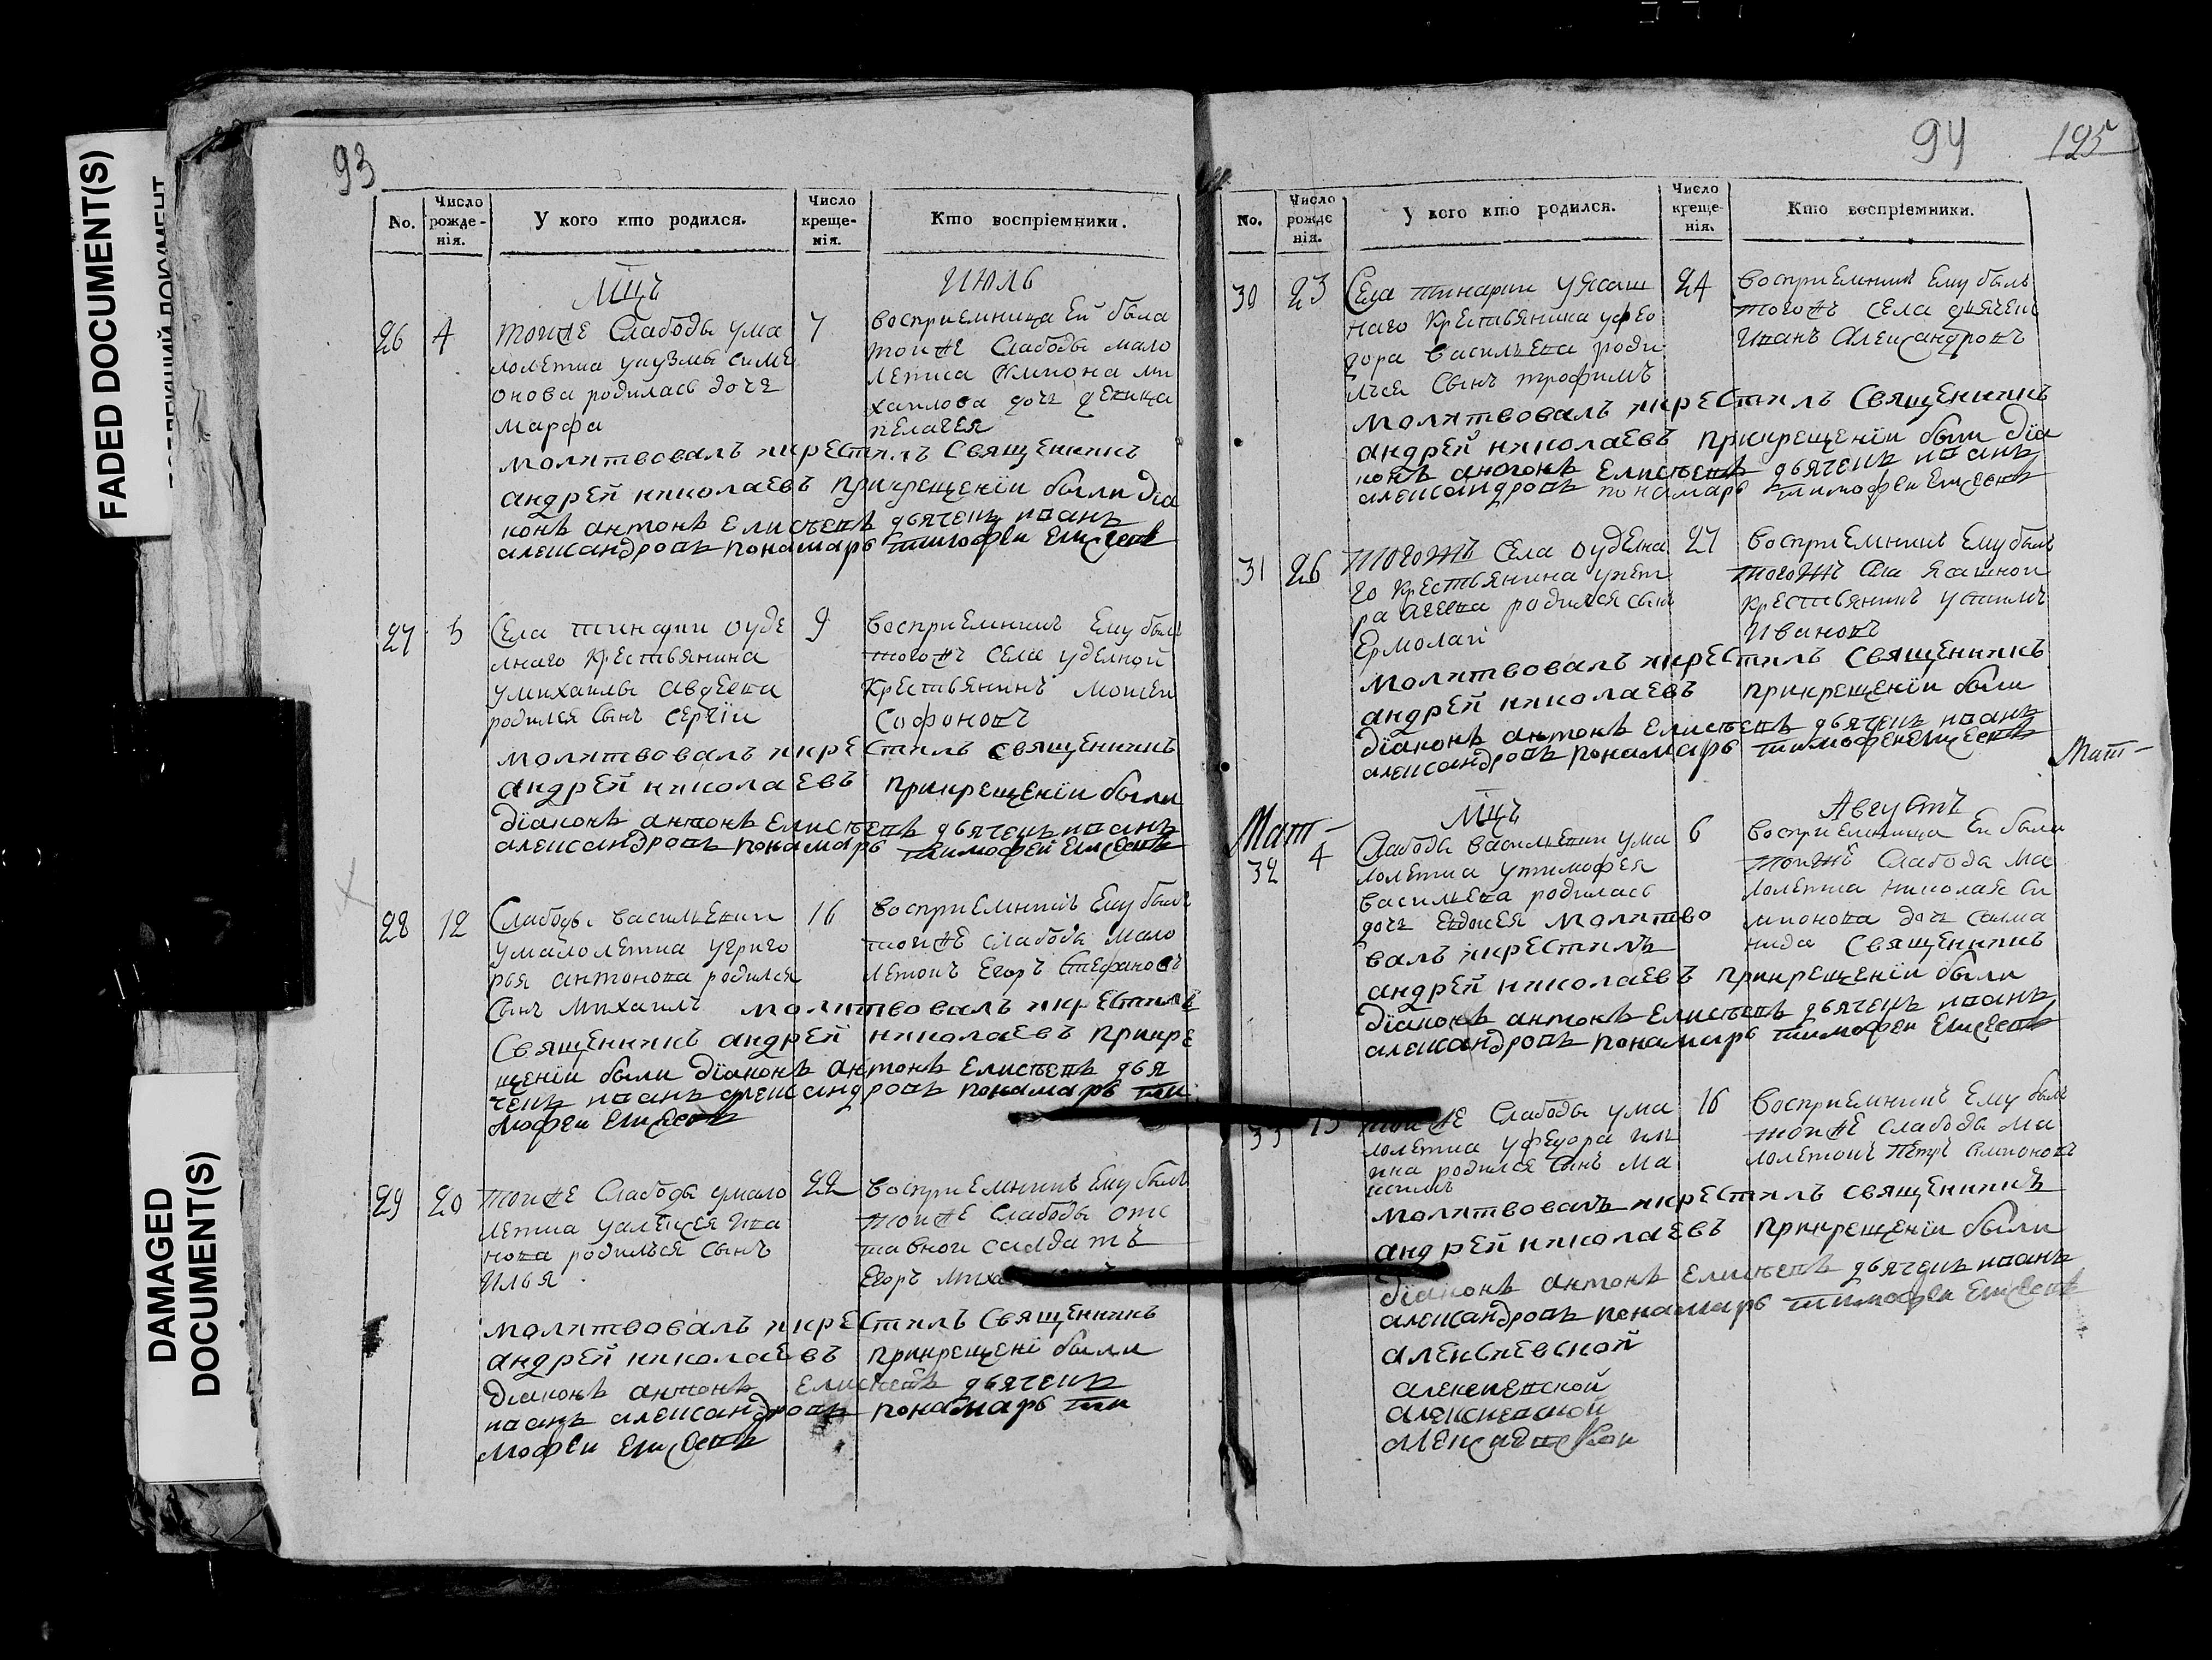 FADED DOCUMENT(S)
DAMAGED
DOCUMENT(S)
93
No.
Число рожде-нія.
У кого кто родился.
Число креще-нія.
Кто воспріемники.
Мцъ Июль
26 4
тойже Слабоды ума
лолетка укузмы симе
онова родилась дочь
Марфа
7
восприемница Ей была
тойже Слабоды мало
летка Симиона ми
хаилова дочь девица
пелагея
молитвовалъ икрестилъ Священникъ
андрей николаевъ прикрещенїи были дїа
конъ антонъ Елисеевъ дьячекъ иванъ
александровъ понамарь тимофеи Елисеевъ
27 5
Села тинарки оуде
лнаго Крестьянина
умихаилы Авдеева
родился сынъ Сергїи
9
восприемникъ Ему былъ
тогожъ села уделной
Крестьянинъ Моисеи
Софоновъ
молитвовалъ икрестилъ священникъ
андрей николаевъ прикрещенїи были
дїаконъ антонъ Елисеевъ дьячекъ иванъ
александровъ понамарь тимофеи Елисеевъ
28 12
Слабоды васильевки
умалолетка угриго
рья антонова родился
сынъ Михаилъ
16
восприемникъ Ему былъ
тойже слабоды мало
летокъ Егоръ Стефановъ
молитвовалъ икрестилъ
Священникъ андрей николаевъ прикре
щенїи были дїаконъ антонъ Елисеевъ дья
чекъ иванъ александровъ понамарь ти
мофеи Елисеевъ
29 20
тойже Слабоды умало
летка уалексея Ива
нова родилься сынъ
Илья
22
восприемникъ Ему былъ
тойже Слабоды отс
тавнои салдатъ
Егоръ
молитвовалъ икрестилъ Священникъ
андрей николаевъ прикрещенї были
дїаконъ антонъ Елисеевъ дьячекъ
иванъ александровъ понамарь ти
мофеи Елисеевъ
94 195
No.
Число рожде нія.
У кого кто родился.
Число креще-нія.
Кто воспріемники.
30 23
Села тинарки уясаш
наго Крестьянина уфео
дора васильева роди
лъся Сынъ трофимъ
24
восприемникъ Ему былъ
тогожъ села дьячекъ
Иванъ Александровъ
молитвовалъ икрестилъ Священникъ
андрей николаевъ прикрещенїи были дїа
конъ антонъ Елисеевъ дьячекъ иванъ
александровъ понамарь тимофеи Елисеевъ
31 26
тогожъ села оуделна
го Крестьянина упет
ра родился сынъ
Ермолай
27
восприемникъ Ему былъ
тогожъ села Ясашнои
Крестьянинъ
Ивановъ
молитвовалъ икрестилъ священникъ
андрей николаевъ прикрещенїи были
дїаконъ антонъ Елисеевъ дьячекъ иванъ
александровъ понамарь тимофеи Елисеевъ
Мат-
Мцъ Августъ
Мат-
32 4
Слабоды васильевки ума
лолетка утимофея
васильева родилась
дочь Евдокея молитво
валъ икрестилъ
6
восприемница Ей была
тойже Слабоды Ма
лолетка николая Си
мионова дочь
Священникъ
андрей николаевъ прикрещенїи были
дїаконъ антонъ Елисеевъ дьячекъ иванъ
александровъ понамарь тимофеи Елисеевъ
33 15
тойже Слабоды ума
лолетка уфедора иль
ина родился сынъ Ма
ксимъ
16
восприемникъ Ему былъ
тойже слабоды ма
лолетокъ Петръ Симионовъ
молитвовалъ икрестилъ священникъ
андрей николаевъ прикрещенїи были
дїаконъ антонъ Елисеевъ дьячекъ иванъ
александровъ понамарь тимофеи Елисеевъ
алексиевской
алексиевской
алексиевской